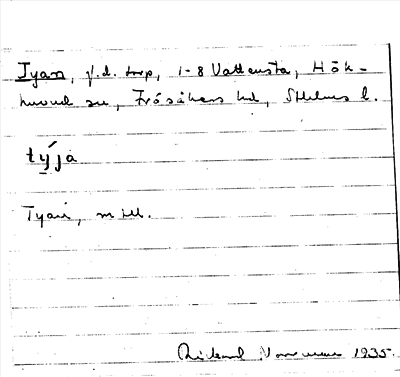 Tyan, f.d. torp, 1-8 Vattensta, Hök-
huvud sn, Frösåkers hd, Sthlms l.
týja
Tyan, m ill.
Rickard Norrman 1935.